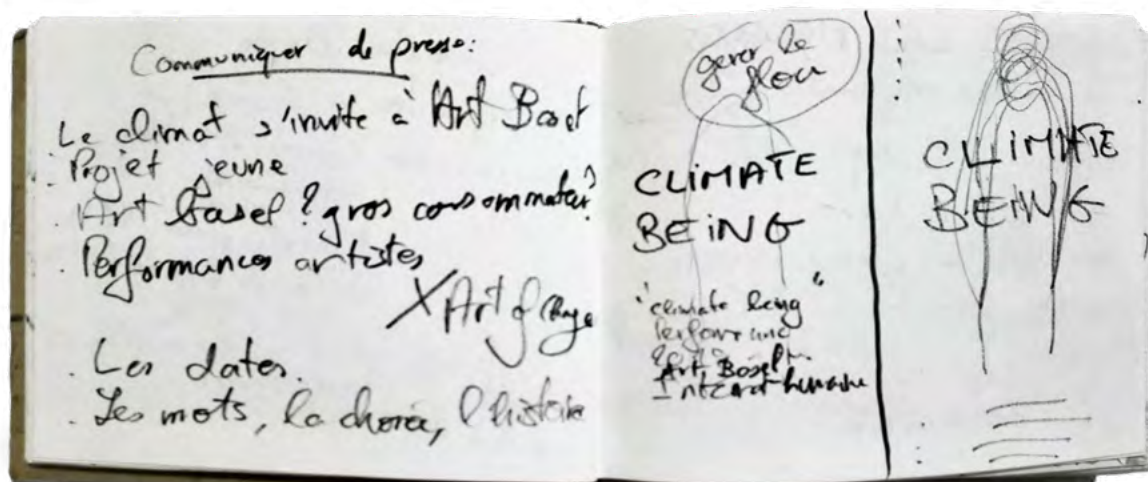 Communiquer de presse:
Le climat s'invite à Art Basel
. Projet jeune
. Art basel ? gros consommateur ?
. Performances artistes
X Art of change
. Les dates.
. Les mots, la choré, l'histoire
gerer le
flou
CLIMATE
BEING
"climate being"
Art Basel
CLIMATE
BEING